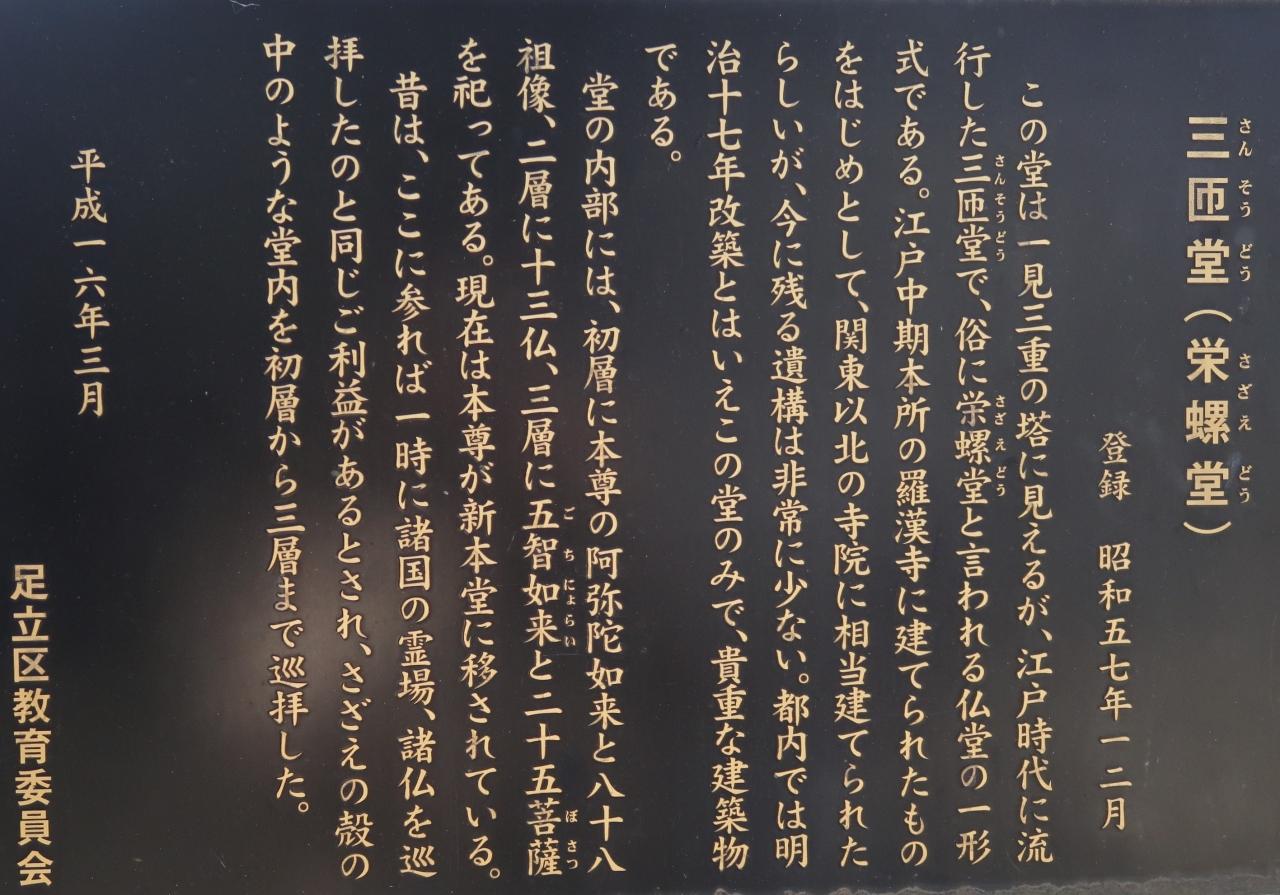 三匝堂(栄螺堂)
さんそうどう さざえどう
登録 昭和五七年一二月
この堂は一見三重の塔に見えるが、江戸時代に流
行した三匝堂で、俗に栄螺堂と言われる仏堂の一形
さんそうどう さざえどう
式である。江戸中期本所の羅漢寺に建てられたもの
をはじめとして、関東以北の寺院に相当建てられた
らしいが、今に残る遺構は非常に少ない。都内では明
治十七年改築とはいえこの堂のみで、貴重な建築物
である。
堂の内部には、初層に本尊の阿弥陀如来と八十八
祖像、二層に十三仏、三層に五智如来と二十五菩薩
ごちにょらい ぼさつ
を祀ってある。現在は本尊が新本堂に移されている。
昔は、ここに参れば一時に諸国の霊場、諸仏を巡
拝したのと同じご利益があるとされ、さざえの殻の
中のような堂内を初層から三層まで巡拝した。
平成一六年三月
足立区教育委員会